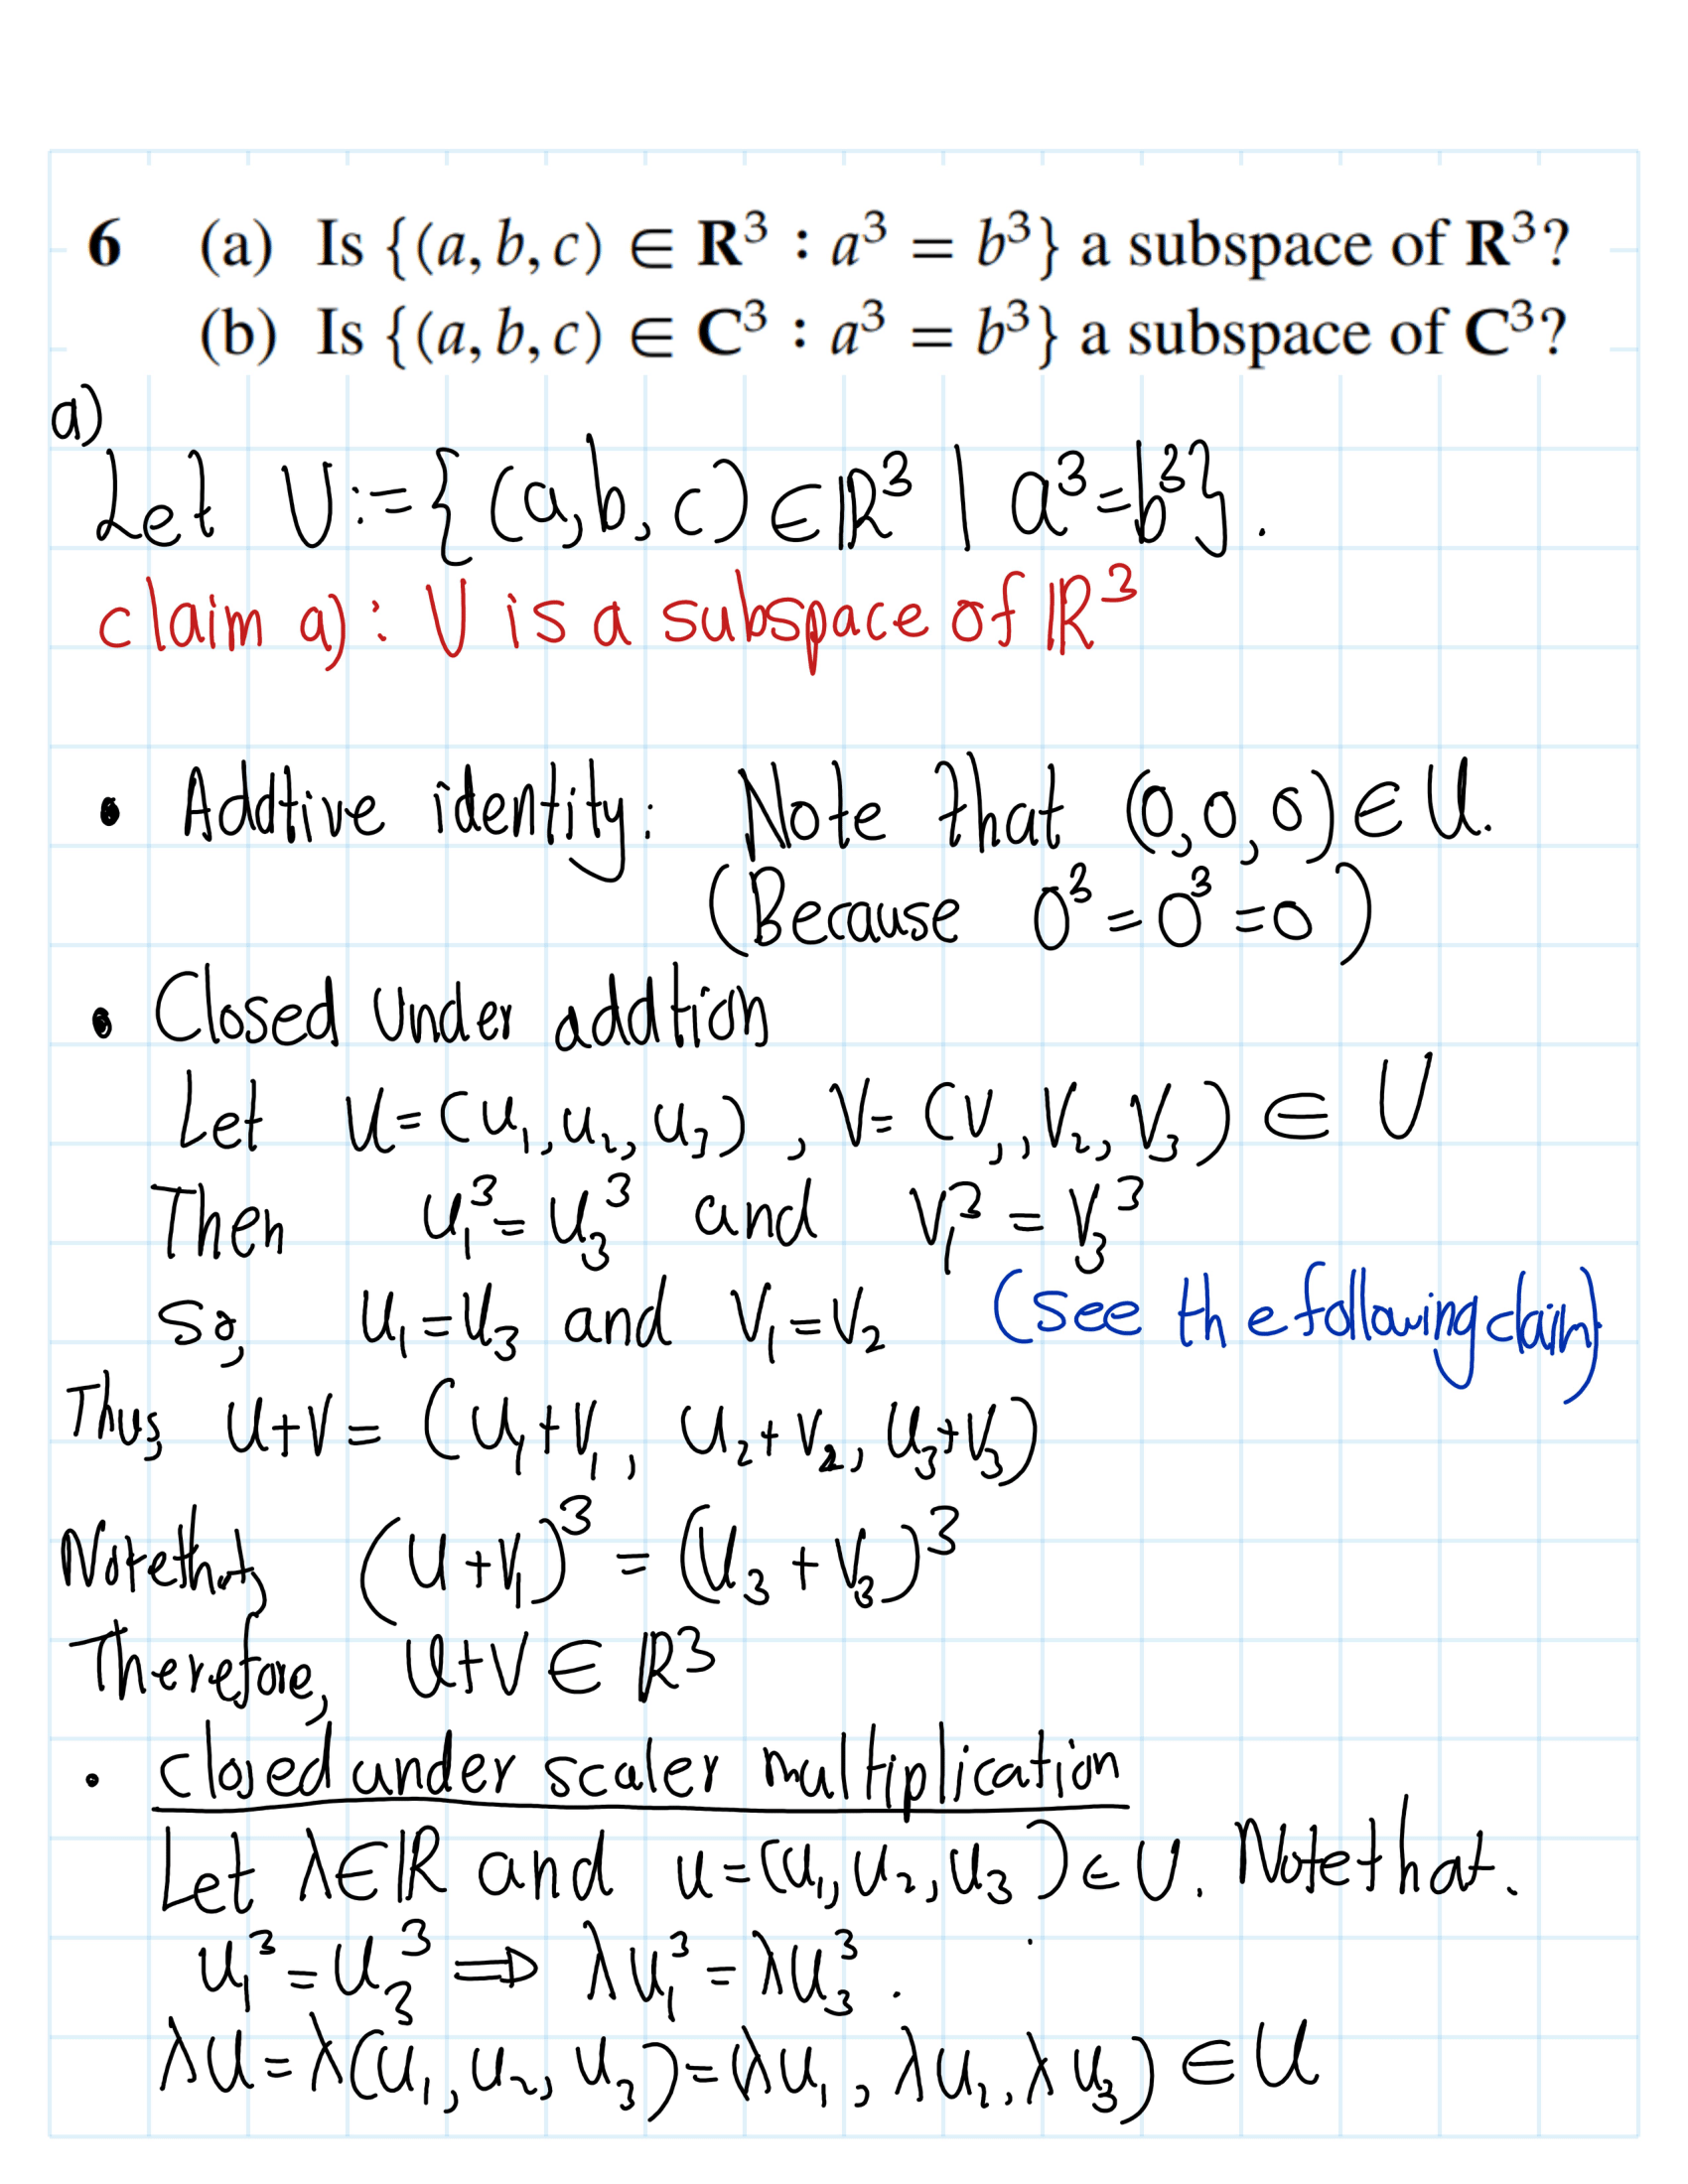 6 (a) Is {(a, b, c) ∈ R³ : a³ = b³} a subspace of R³?
(b) Is {(a, b, c) ∈ C³ : a³ = b³} a subspace of C³?
a)
Let U:={(a,b,c)∈ℝ³ | a³=b³}.
claim a): U is a subspace of ℝ³
• Addtive identity: Note that (0,0,0)∈U.
(Because 0³=0³=0)
• Closed under addtion
Let u=(u₁,u₂,u₃), v=(v₁,v₂,v₃)∈U
Then u₁³=u₃³ and v₁³=v₃³
So, u₁=u₃ and v₁=v₂ (see the following claim)
Thus, u+v=(u₁+v₁, u₂+v₂, u₃+v₃)
Note that, (u+v₁)³=(u₃+v₃)³
Therefore, u+v∈ℝ³
• closed under scaler multiplication
Let λ∈ℝ and u=(u₁,u₂,u₃)∈U. Note that.
u₁³=u₃³ ⟹ λu₁³=λu₃³.
λu=λ(u₁,u₂,u₃)=(λu₁,λu₂,λu₃)∈U